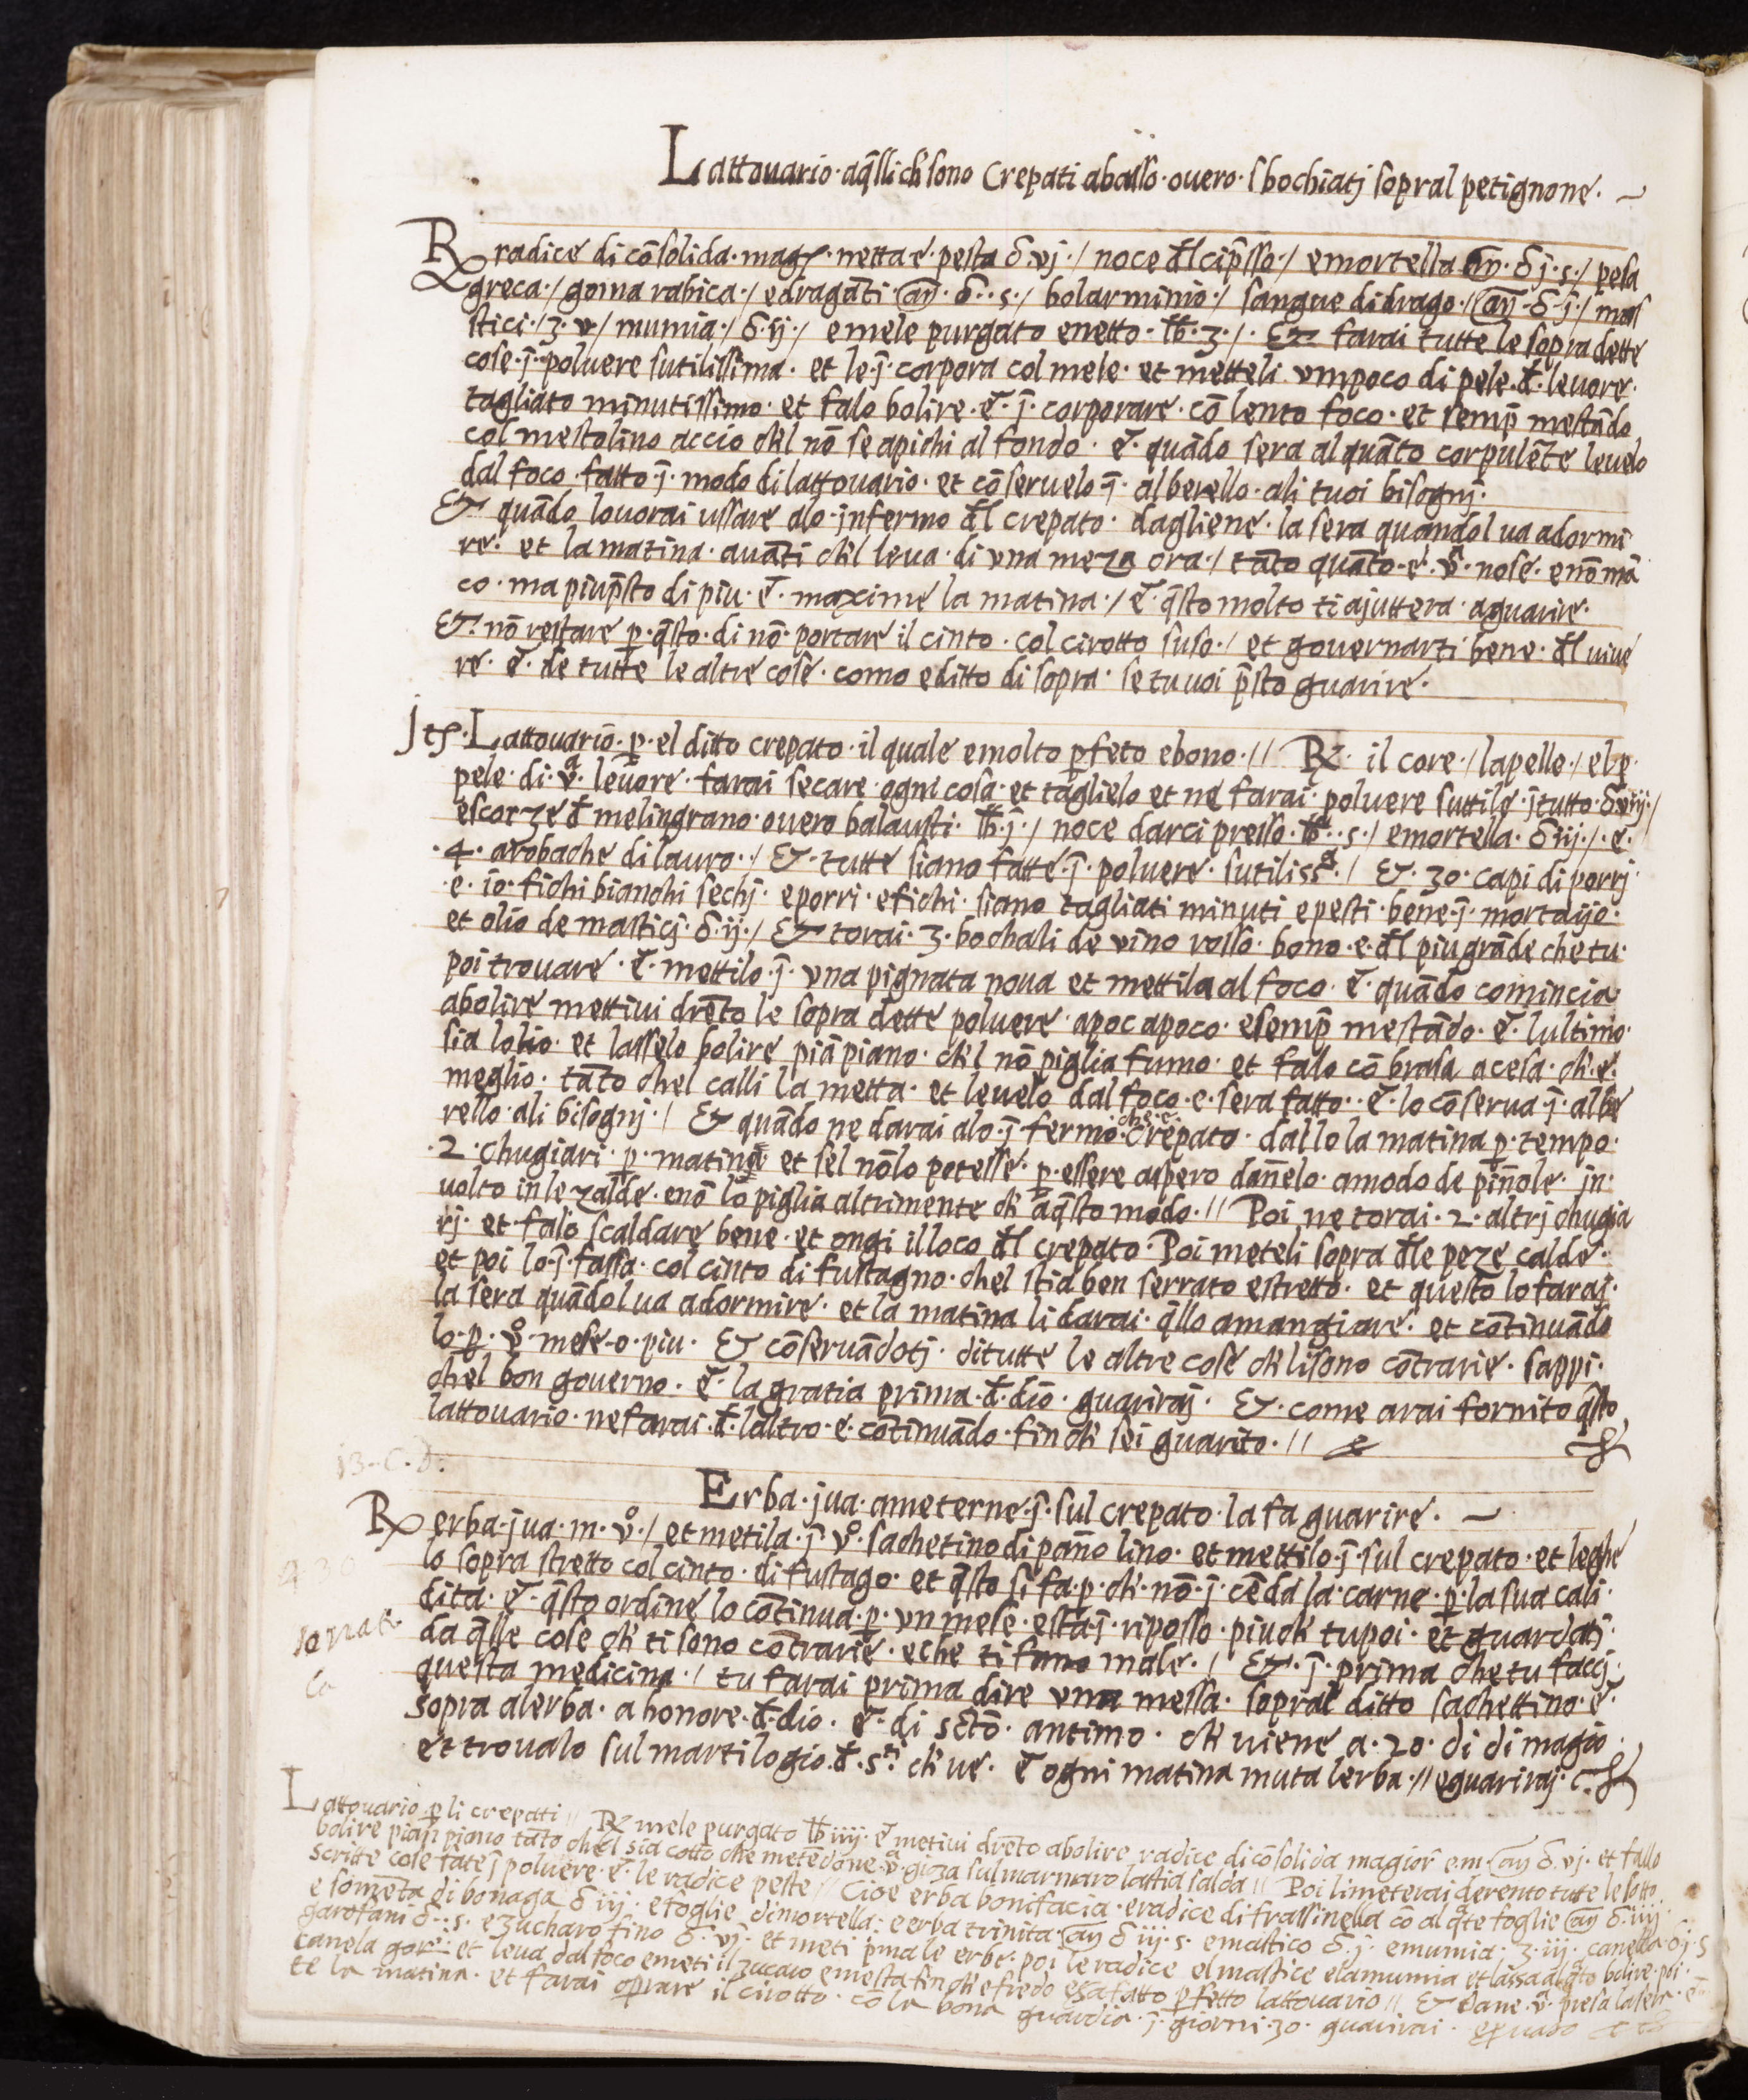 Lattouario · aq̄lli ch' sono Crepati abasso · ouero · sbochiatj sopral petignone · ~
℞ radice di cōsolida · mag · netta e · pesta ℥ vj · / noce đl cip̄sso · / emortella añ · ℥ j · s · / pesa
greca · / goma rabica · / edragāti añ · ℥ · s · / bolarminio · / sangue didrago · / añ · ℥ · j̄ · / mas
stici · / 3 · v / mumia · / ℥ · ij · / emele purgato enetto · ℔ · 3 · / · Et farai tutte le sopra dette
cose · j̄ · poluere sutilissima · et le · j̄ · corpora col mele · et metteli vmpoco di pele · đ · leuore ·
tagliato minutissimo · et falo bolire · e · j̄ · corporare · cō lento foco · et semp̄ mestādo
col mestolino accio ch'l nō se apichi al fondo · e · quādo sera al quāto corpulēte leuelo
dal foco · fatto · j̄ · modo di lattouario · et cōseruelo · j̄ · alberello · ali tuoi bisognj ·
Et quādo louorai ussare alo · jnfermo đl crepato · dagliene · la sera quandol ua adormi
re · et la matina · auāti ch'l leua · di vna meza ora · / tāto quāto · e · v̄ · nose · enō mā
co · ma piup̄sto di piu · e · maxime la matina · / e · q̄sto molto ti ajuttera · aguarire ·
Et · nō restare p̱ · q̄sto · di nō · portare il cinto · col cirotto suso · / et gouernarti bene · đl uiue
re · e · de tutte le altre cose · como editto di sopra · se tu uoi p̄sto guarire ·
Jt · Lattouario · p̱ · el ditto crepato · il quale emolto p̱feto ebono · // ℞ · il core · / lapelle · / el p̱
pele · di · vᵃ · leuore · farai secare · ogni cosa · et taglielo et ne farai · poluere suttile · j̄tutto · ℥ viij · /
escorze đ melingrano · ouero balausti · ℔ · j̄ · / noce darcipresso · ℔ · s · / emortella · ℥ iij · / · e ·
· 4 · arobache di lauro · / Et · tutte siano fatte · j̄ · poluere · sutilissᵃ · / Et · 30 · capi di porrj ·
· e · io · fichi bianchi sechj · eporri · efichi · siano tagliati minuti epesti · bene · j̄ · mortaijo ·
et olio de masticj · ℥ · ij · / Et torai · 3 · bochali de vino rosso · bono · e · đl piu grāde che tu ·
poi trouare · e · mettilo · j̄ · vna pignata noua et mettila al foco · e · quādo comincia
abolire mettiui drēto le sopra dette poluere · apoc apoco · esemp̄ mestādo · e · lultimo
sia lolio · et lasselo bolire piā piano · ch'l nō piglia fumo · et falo cō brasa acesa · ch' · e ·
meglio · tāto chel calli la metta · et leuelo dal foco · e · sera fatto · · e · lo cōserua · j̄ · albe
rello · ali bisognj · / Et quādo ne darai alo · j̄ fermo · che · e · Crepato · dallo la matina p̱ · tempo ·
· 2 · chugiari · p̱ · matina et sel nōlo potesse · p̱ · essere aspero dān̄elo · amodo de pin̄ole · jn ·
uolto in le zalde · enō lo piglia altrimente ch' aq̄sto modo · // Poi ne torai · 2 · altrj chugia
rj · et falo scaldare bene · et ongi illoco đl crepato · Poi meteli sopra đle peze calde ·
et poi lo · j̄ · fassa · col cinto di fustagno · chel stia ben serrato estretto · et questo lo faraj ·
la sera quādol ua adormire · et la matina li darai · q̄llo amangiare · et cōtinuādo
lo · p̱ · vº · mese · o · piu · Et cōseruādotj · ditutte le altre cose ch' lisono cōtrarie · sappi ·
chel bon gouerno · e · la gratia prima · đ · dio · guariraj · Et · come arai fornito q̄sto
lattouario · ne farai · đ · laltro · e · cōtinuādo · fin ch' sei guarito · //
Erba · jua · ameterne · j̄ · sul crepato · la fa guarire · ~
℞ erba · jua · m · vº · / et metila · j̄ · vº · sachetino di pan̄o lino · et mettilo · j̄ sul crepato · et leghe
lo sopra stretto col cinto · di fustago · et q̄sto si fa · p̱ · ch' · nō · j̄ · cēda la · carne · p̱ · la sua cali ·
dita · e · q̄sto ordine lo cōtinua · p̱ · vn mese · esta · j̄ · riposso · piu ch' tu poi · et guardatj ·
da q̄lle cose ch' ti sono cōtrarie · eche ti fano male · / Et · j̄ · prima che tu faccj
questa medicina · / tu farai prima dire vna messa · sopral ditto sachettino · e ·
sopra alerba · a honore · đ · dio · e · di sctō · antimo · ch' uiene a · 20 · di di magio ·
et troualo sul martilogio · đ · sᵗⁱ · ch' ue · e ogni matina muta lerba · // eguariraj ·
Lattouario p̱ li crepati // ℞ mele purgato ℔ iiij · e metiui drēto abolire radice di cōsolida magior em · añ ℥ · vj · et fallo
bolire piā piano tāto chel sia cotto che metēdone · vᵃ · gioza sul marmaro lastia salda // Poi limeterai derento tute le sotto
scritte cose fate j̄ poluere · e · le radice peste // Cioe erba bonifacia · eradice di frassinella cō alq̄te foglie añ ℥ · iiij
e somēta di bonaga ℥ iij · efoglie dimortella : eerba trinita añ ℥ iij · s · emastico ℥ · j · emumia · 3 · iij · canella ℥ j · s
garofani ℥ · s · ezucharo fino ℥ · vj · et meti p̄ma le erbe · poi le radice el mastice elamumia et lassa alq̄to bolire · poi ·
canela gar · et leua dal foco emeti il zucaro emesta fin ch' e fredo esera fatto p̱fetto lattouario // Et dane · vᵃ · presa la sera · e
te la matina · et farai op̱rare il cirotto · cō la bona guardia · j̄ · giorni · 30 · guarirai ·